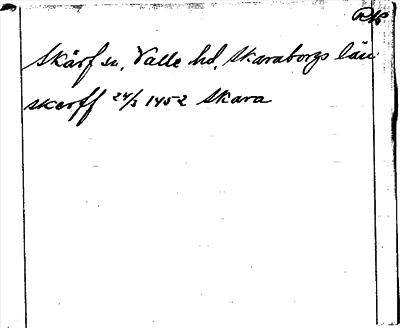 Skärf sn, Valle hd, Skaraborgs län
skerff 24/2 1452 Skara